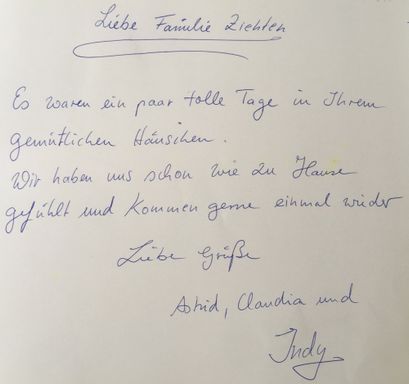 Liebe Familie Ziehten
Es waren ein paar tolle Tage in Ihrem
gemütlichen Häuschen.
Wir haben uns schon wie zu Hause
gefühlt und kommen gerne einmal wieder
Liebe Grüße
Astrid, Claudia und
Indy